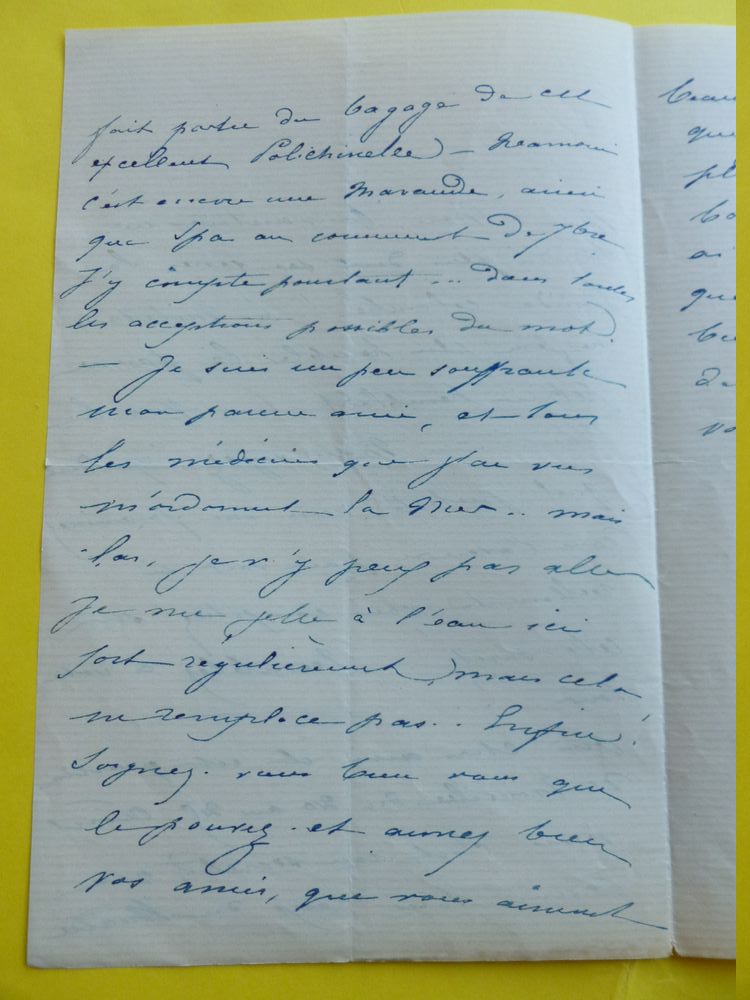 fait partie du bagage de cet
excellent Polichinelle) –
c'est encore une Maraude, ainsi
que Spa au comment de 7bre
J'y compte pourtant ... dans toutes
les acceptions possibles du mot)
— Je suis un peu souffrante
mon pauvre ami, et tous
les médecins que j'ai vus
m'ordonnent la Mer .. mais
las, je n'y peux pas aller
Je me jette à l'eau ici
fort régulièrement, mais cela
ne remplace pas .. Enfin!
Soignez-vous bien vous qui
le pouvez - et aimez bien
vos amis, qui vous aiment